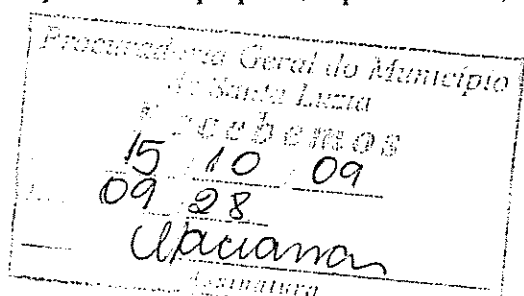 Procuradoria Geral do Município
de Santa Luzia
Recebemos
15 / 10 / 09
09 28
Assinatura